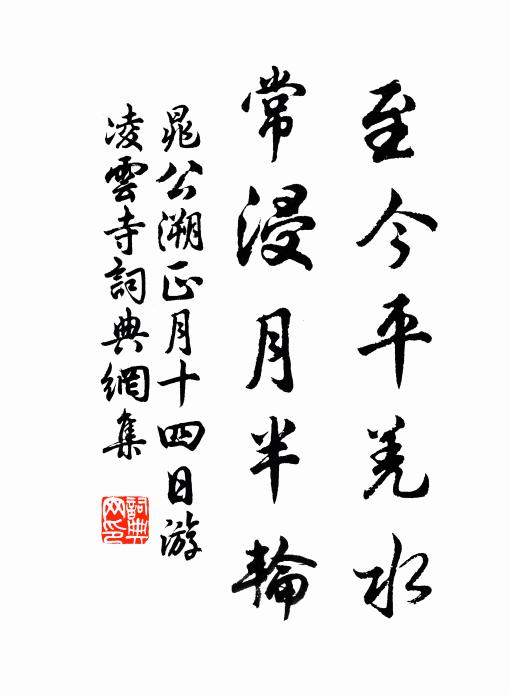 至今平羌水
常浸月半輪
晁公溯正月十四日游
凌雲寺詞典網集
詞典
网印